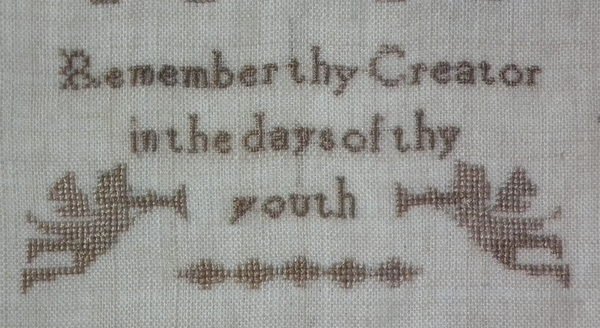 Remember thy Creator
in the days of thy
youth